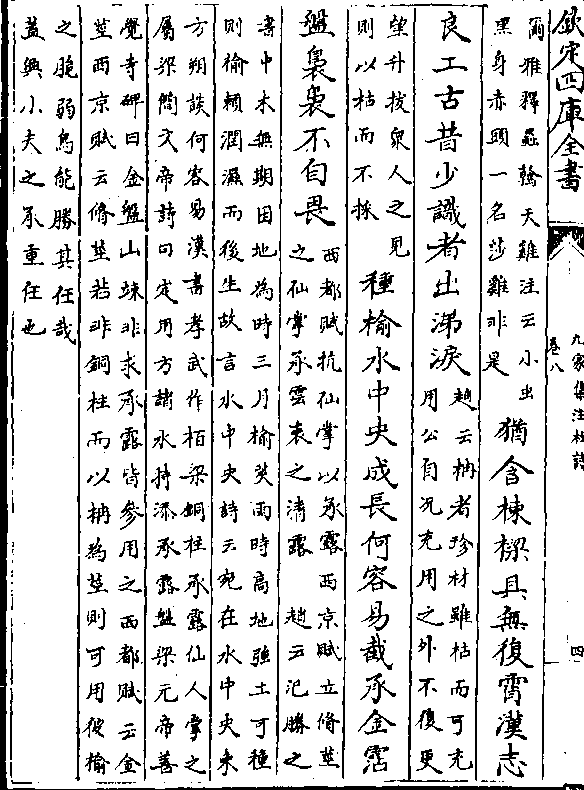 欽定四庫全書
九家集注杜詩
卷八
四
爾雅釋蟲天雞注云小虫
黑身赤頭一名莎雞非是
猶含棟樑具無復霄漢志
良工古昔少識者出涕淚
趙云柟者珍材雖枯而可充
用公自况充用之外不復更
望升拔衆人之見
則以枯而不採
種榆水中央成長何容易截承金露
盤裊裊不自畏
西都賦抗仙掌以承露西京賦立脩莖
之仙掌承雲表之清露 趙云氾勝之
書中木無期因地為時三月榆莢雨時高地強土可種
則榆賴潤濕而後生故言水中央詩云宛在水中央東
方朔談何容易漢書孝武作栢梁銅柱承露仙人掌之
屬梁簡文帝詩曰定用方諸水持添承露盤梁元帝善
覺寺碑曰金盤山竦非求承露皆參用之西都賦云金
莖西京賦云脩莖若非銅柱而以柟為莖則可用彼榆
之脆弱烏能勝其任哉
蓋興小夫之承重任也